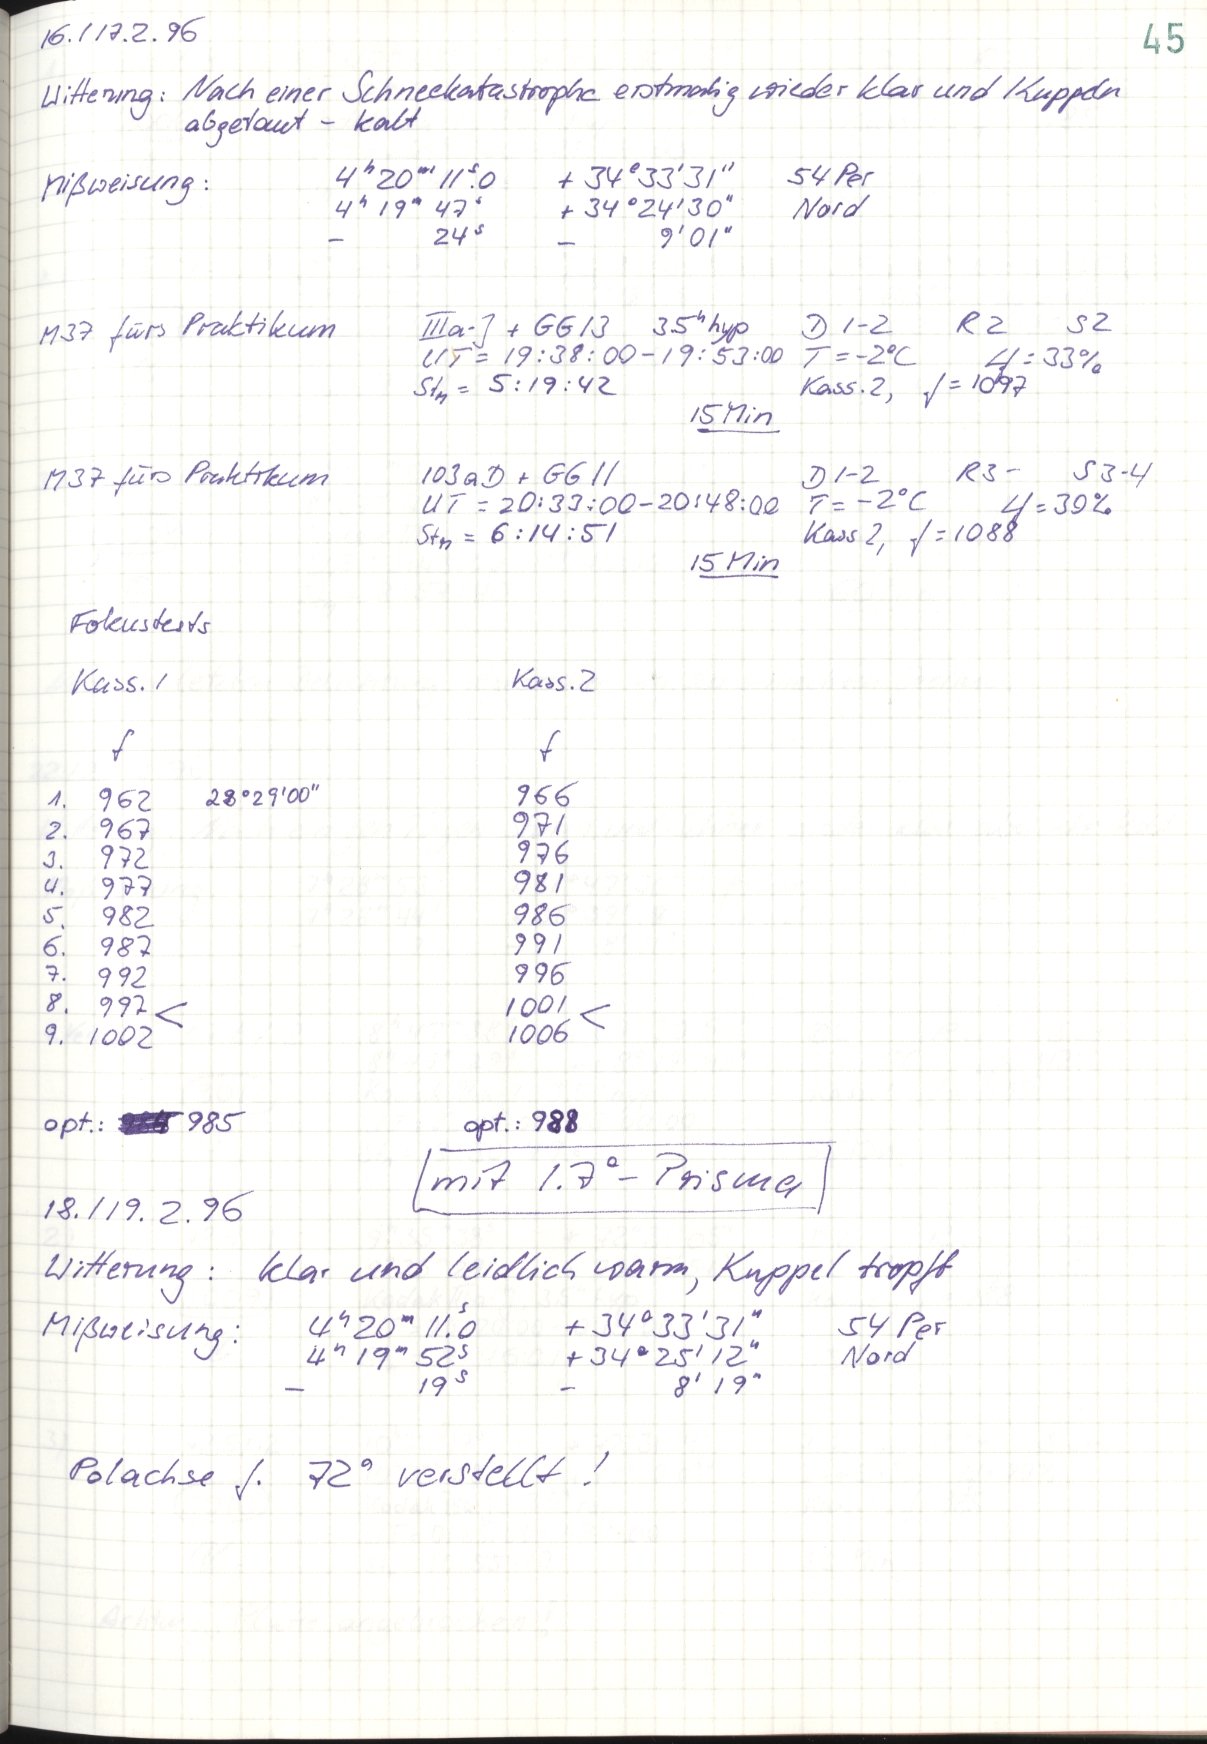 45
16./17.2.96
Witterung: Nach einer Schneekatastrophe erstmalig wieder klar und Kuppeln
abgetaut - kalt
Mißweisung: 4h 20m 11s.0 + 34°33'31" 54 Per
4h 19m 47s + 34°24'30" Nord
- 24s - 9'01"
M37 fürs Praktikum IIIa-J + GG13 35h hyp D 1-2 R2 S2
UT = 19:38:00-19:53:00 T = -2°C φ = 33%
Stn = 5:19:42 Kass. 2, f = 1097
15 Min
M37 fürs Praktikum 103aD + GG11 D 1-2 R3- S3-4
UT = 20:33:00-20:48:00 T = -2°C φ = 39%
Stn = 6:14:51 Kass 2, f = 1088
15 Min
Fokustests
Kass. 1 Kass. 2
f f
1. 962 28°29'00" 966
2. 967 971
3. 972 976
4. 977 981
5. 982 986
6. 987 991
7. 992 996
8. 997 < 1001 <
9. 1002 1006
opt.: 985 opt.: 988
mit 1.7°-Prisma
18./19.2.96
Witterung: klar und leidlich warm, Kuppel tropft
Mißweisung: 4h 20m 11s.0 + 34°33'31" 54 Per
4h 19m 52s + 34°25'12" Nord
- 19s - 8'19"
Polachse f. 72° verstellt!